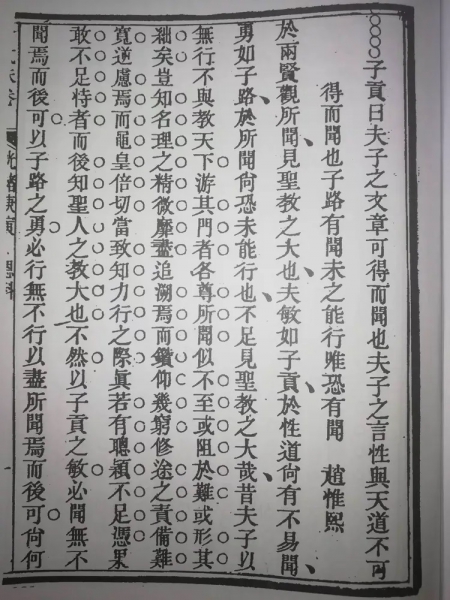 子貢曰夫子之文章可得而聞也夫子之言性與天道不可
得而聞也子路有聞未之能行唯恐有聞 趙惟熙
於兩賢觀所聞見聖教之大也夫敏如子貢於性道尙有不易聞
勇如子路於所聞尙恐未能行也不足見聖教之大哉昔夫子以
無行不與教天下游其門者各尊所聞似不至或阻於難或形其
絀矣豈知名理之精微靡盡追溯焉而鑽仰幾窮修途之責備難
寬逆慮焉而黽皇倍切當致知力行之際眞若有聰穎不足憑果
敢不足恃者而後知聖人之教大也不然以子貢之敏必聞無不
聞焉而後可以子路之勇必行無不行以盡所聞焉而後可尙何
光緒庚寅 恩科